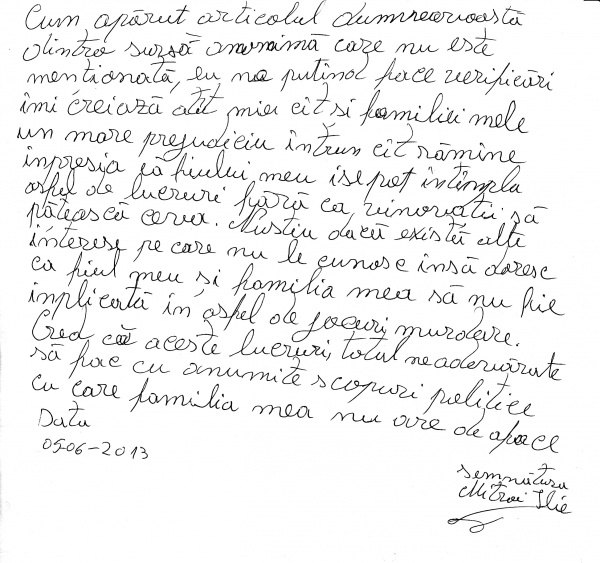 Cum apărut articolul dumneavoastă
dintro sursă anonimă care nu este
menționată, eu na puțind face verificări
îmi creiază atît miei cît si familiei mele
un mare prejudiciu întrun cît rămîne
inpresia că fiului meu ise pot întîmpla
asfel de lucruri fără ca vinovații să
pătească ceva. Nustiu dacă există alte
interese pe care nu le cunosc însă doresc
ca fiul meu și familia mea să nu fie
implicată în asfel de jocuri murdare.
Cred că aceste lucruri, total neadevărate
să fac cu anumite scopuri politice
cu care familia mea nu are de aface
Data
05-06-2013
semnătura
Mitroi Ilie